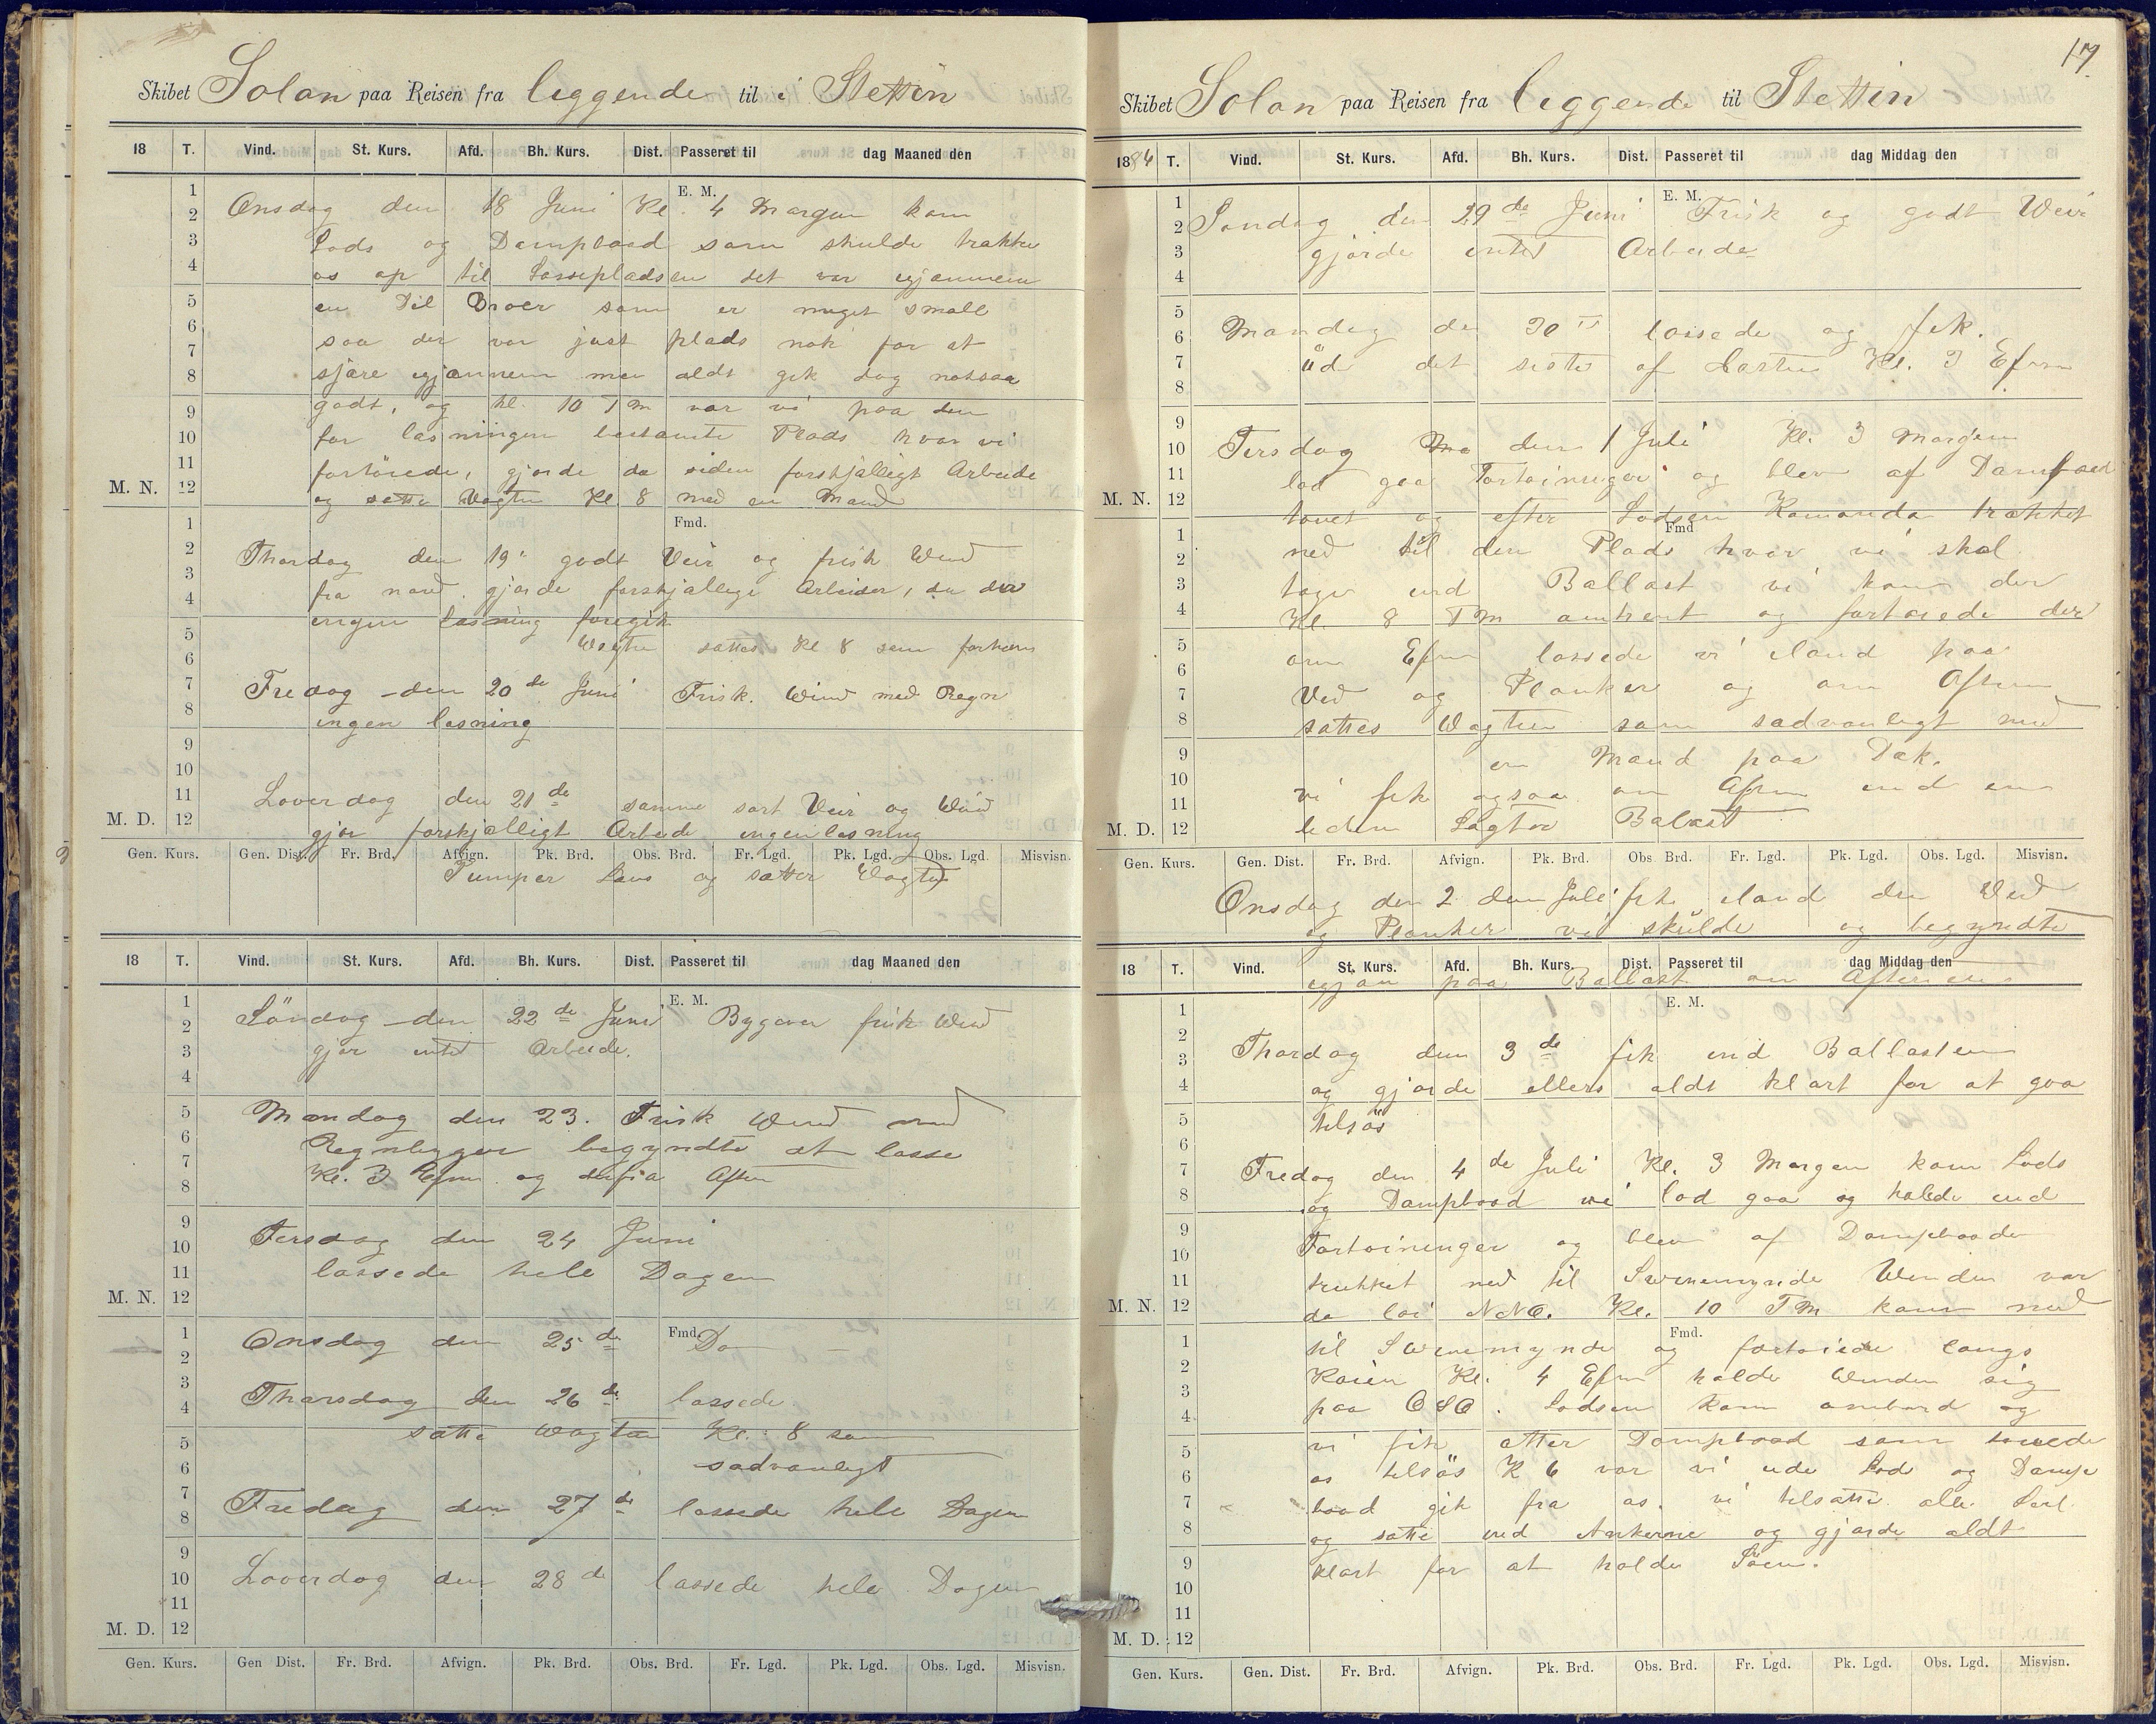 Skibet Solon paa Reisen fra leggende til i Stettin
18 T. Vind. St. Kurs. Afd. Bh. Kurs. Dist. Passeret til dag Maaned den
E. M.
Onsdag den 18 Juni Kl. 4 Morgen kom
Lods og Dampbaad som skulde trakke
os op til Lossepladsen det var igjennem
en Del Broer som er meget small
saa der var just plads nok for at
sjære igjennem men aldt gik dog nassaa
godt, og kl. 10 Fm var vi paa den
for lasningen bestamte Plads hvor vi
fortöiede, gjorde da siden forskjælligt Arbeide
og satte Vagten Kl. 8 med en Mand
M. N.
Fmd.
Thorsdag den 19' godt Veir og frisk Wind
fra nord. gjorde forskjællige Arbeider, da der
ingen lasning foregik
Wagten sattes Kl 8 som forhen
Fredag den 20 de Juni Frisk. Wind med Regn
ingen lasning
Loverdag den 21 de samme sort Veir og Wind
gjor forskjælligt Arbeide ingen lasning
M. D.
Gen. Kurs. Gen. Dist. Fr. Brd. Afvign. Pk. Brd. Obs. Brd. Fr. Lgd. Pk. Lgd. Obs. Lgd. Misvisn.
Pumper Lens og satter Vagten
18 T. Vind. St. Kurs. Afd. Bh. Kurs. Dist. Passeret til dag Maaned den
E. M.
Söndag den 22 de Juni Bygever frisk Wind
gjor intet Arbeide.
Mandag den 23. Frisk Wind med
Regnbyger begyndte at losse
Kl. 3 Efm. og Aften
Tersdag den 24 Juni
lossede hele Dagen
M. N.
Fmd.
Onsdag den 25 de Do —
Tharsdag den 26 de lossede
satte Wagten Kl. 8 som
sadvanligt
Fredag den 27 de lossede hele Dagen
Loverdag den 28 de lossede hele Dagen
M. D.
Gen. Kurs. Gen Dist. Fr. Brd. Afvign. Pk. Brd. Obs. Brd. Fr. Lgd. Pk. Lgd. Obs. Lgd. Misvisn.
17
Skibet Solon paa Reisen fra leggende til Stettin
1884 T. Vind. St. Kurs. Afd. Bh. Kurs. Dist. Passeret til dag Middag den
E. M.
Sondag den 29 de Juni Frisk og godt Weir
gjorde intet Arbeide
Mandag den 30 lossede og fik.
üd det siste af Lasten Kl. 3 Efm
Tersdag den 1 Juli Kl. 3 Morgen
lod gaa Fortöininger og blev af Dampbaad
tauet og efter Lodsen Komando trakket
M. N.
Fmd
ned til den Plads hvor vi skal
tage ind Ballast vi kom der
Kl. 8 Fm omtrent og fortoiede der
om Efm lossede vi iland paa
Ved og Planker og om Aften
sattes Wagten som sadvanligt med
en Mand paa Dæk.
vi fik ogsaa om Afm ind en
liden Lagter Balast
M. D.
Gen. Kurs. Gen. Dist. Fr. Brd. Afvign. Pk. Brd. Obs. Brd. Fr. Lgd. Pk. Lgd. Obs. Lgd. Misvisn.
Onsdag den 2 den Juli fik iland den Ved
og Planker vi skülde og begyndte
18 T. Vind. St. Kurs. Afd. Bh. Kurs. Dist. Passeret til dag Middag den
igjen paa Ballast om Aftenen
E. M.
Thorsdag den 3 de fik ind Ballasten
og gjorde ellers aldt klart for at gaa
tilsös
Fredag den 4 de Juli Kl. 3 Morgen kom Lods
og Dampbaad vi lod gaa og halede ind
Fortoininger og blev af Dampbaaden
trukket ned til Swinemynde Winden var
da loi NNO. Kl. 10 Fm kom ned
M. N.
Fmd.
til Swinemynde og fortoiede langs
Kaien Kl. 4 Efm holdt Winden sig
paa OSO. Lodsen kom ombord og
vi fik atter Dampbaad som tauede
os tilsös K 6 var vi ude Lods og Damp
baad gik fra os. vi tilsatte alle Seil
og satte ind Ankerne og gjorde aldt
klart for at holde Söen.
M. D.
Gen. Kurs. Gen. Dist. Fr. Brd. Afvign. Pk. Brd. Obs. Brd. Fr. Lgd. Pk. Lgd. Obs. Lgd. Misvisn.